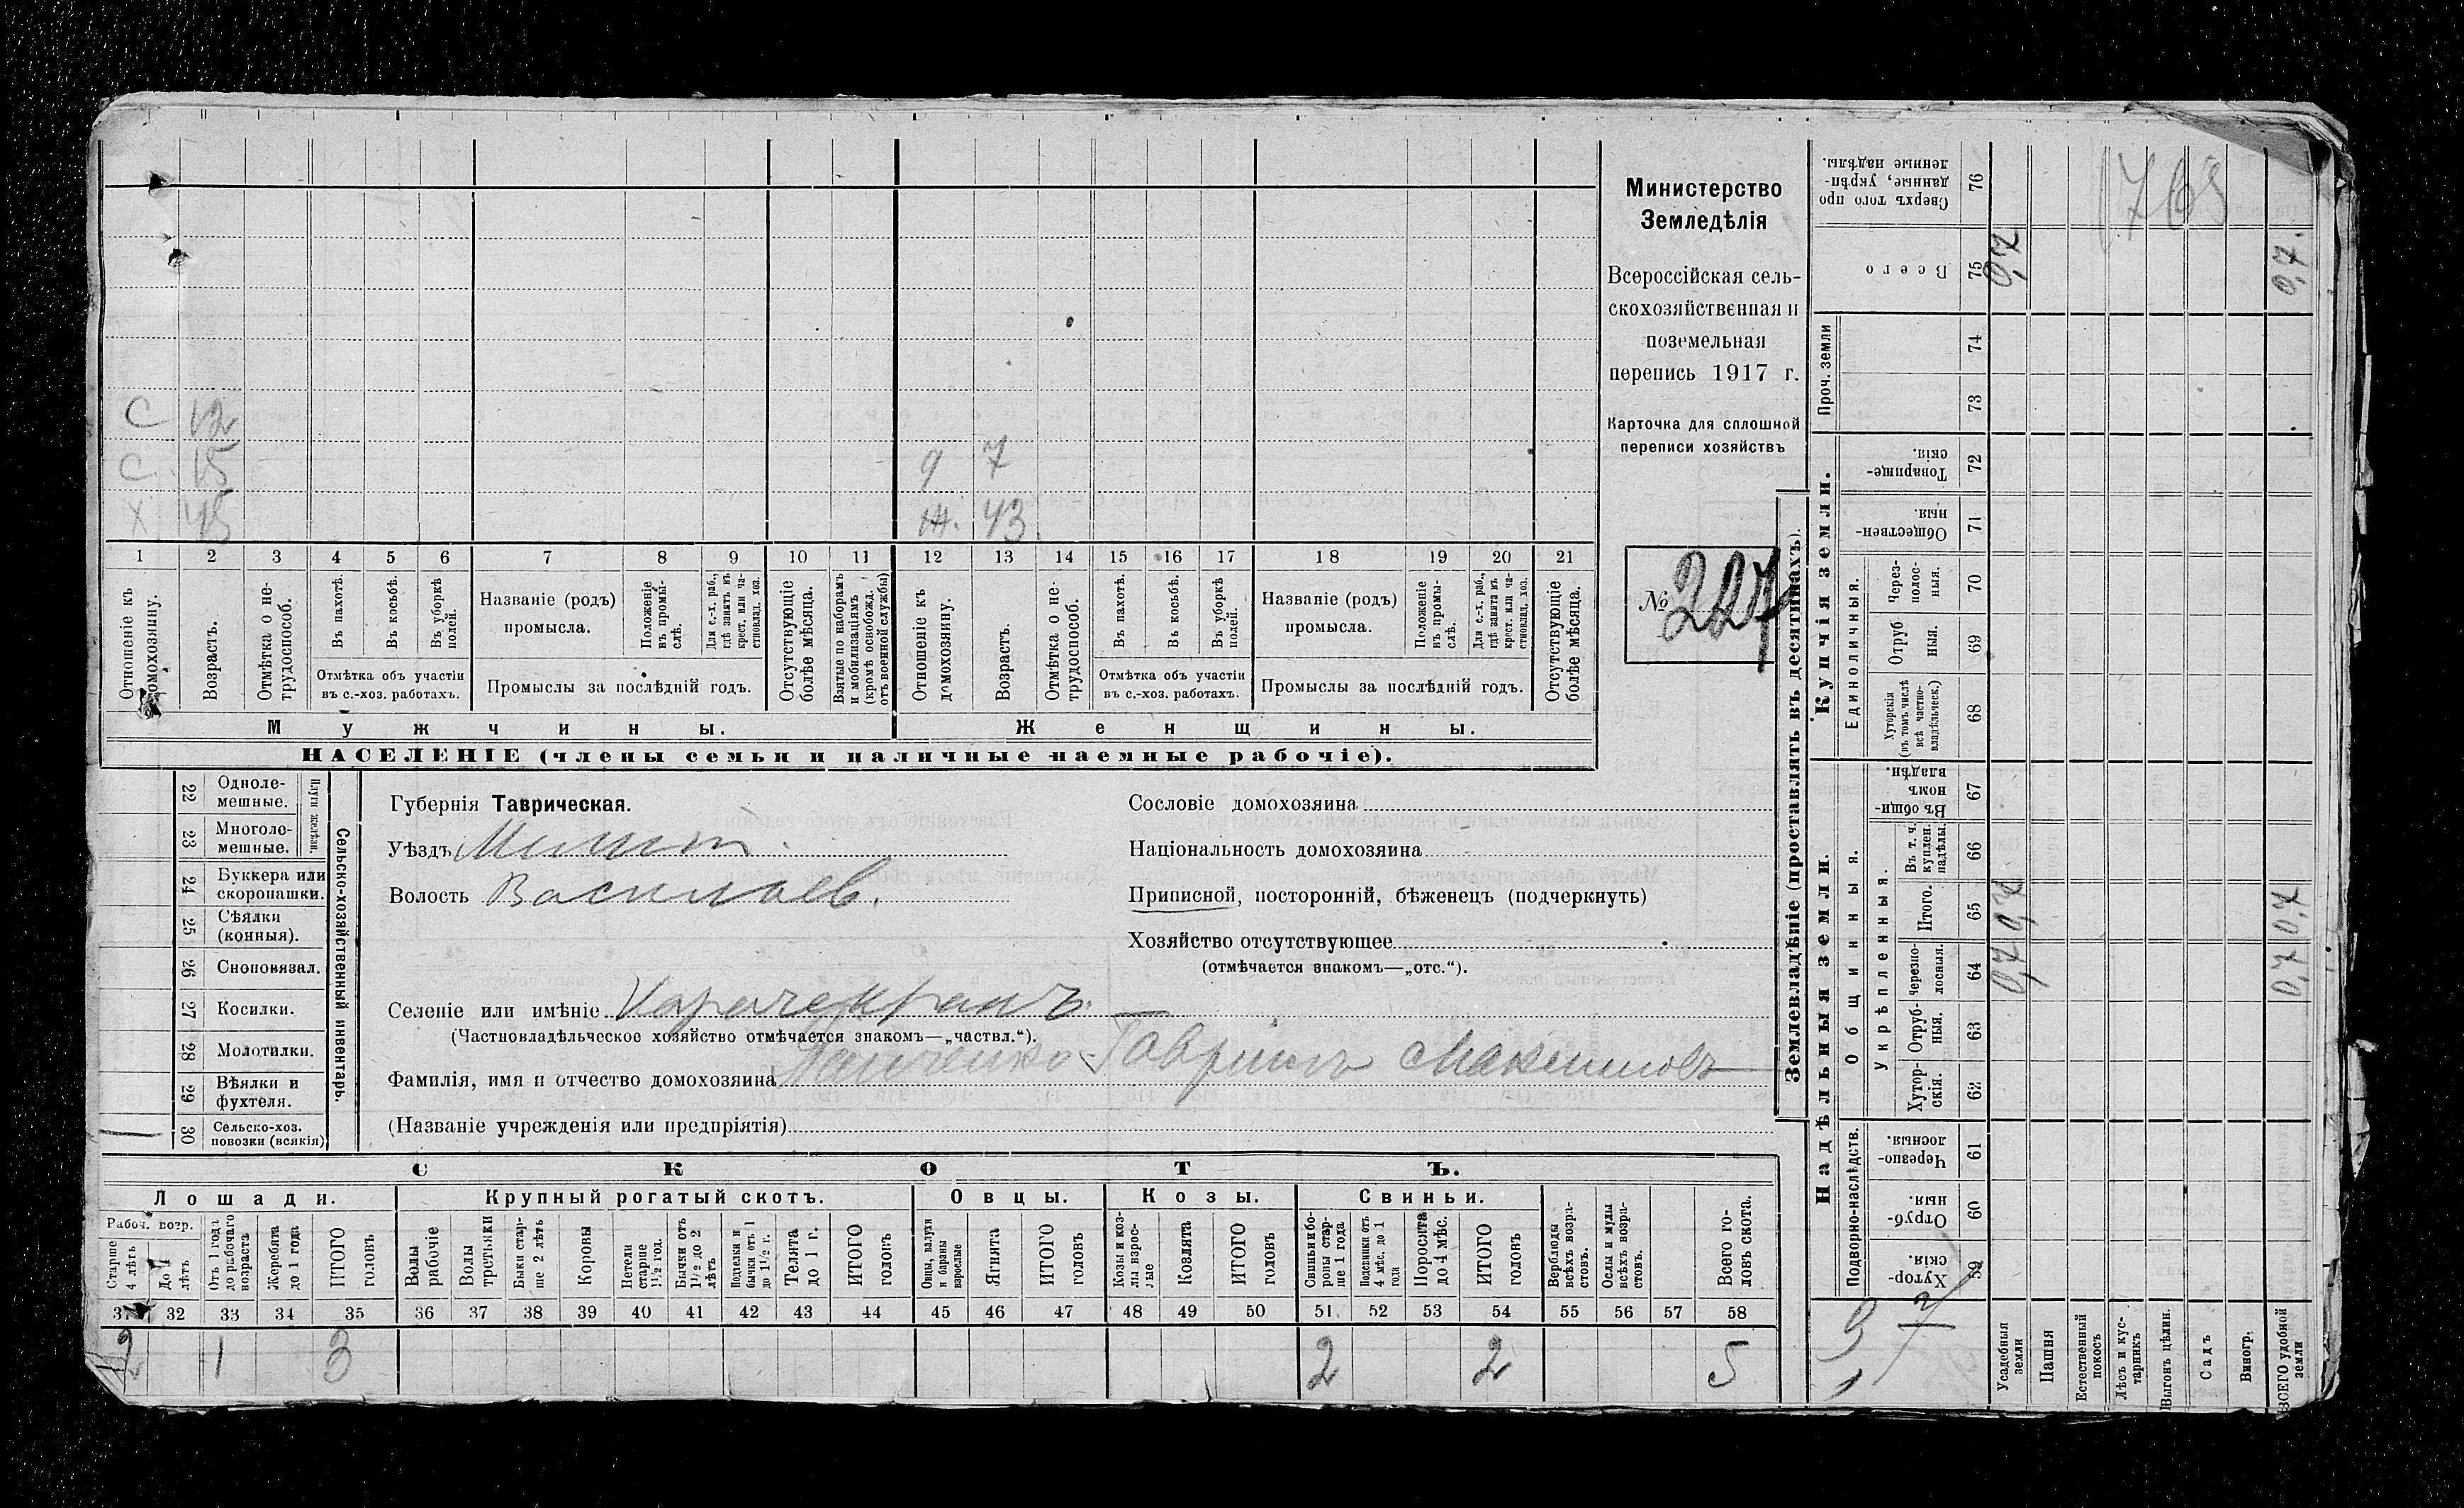 С 12
С 15 д 7
Х 45 Ж. 43
1 2 3 4 5 6 7 8 9 10 11 12 13 14 15 16 17 18 19 20 21
Отношеніе къ домохозяину.
Возрастъ.
Отмѣтка о нетрудоспособ.
Въ пахотѣ.
Въ косьбѣ.
Въ уборкѣ полей.
Отмѣтка объ участіи
въ с.-хоз. работахъ.
Названіе (родъ)
промысла.
Положеніе въ промыслѣ.
Для с.-х. раб., гдѣ занятъ въ крест. или частновлад. хоз.
Промыслы за послѣдній годъ.
Отсутствующіе болѣе мѣсяца.
Взятые по наборамъ и мобилизаціямъ (кромѣ освобожд. отъ военной службы)
Отношеніе къ домохозяину.
Возрастъ.
Отмѣтка о нетрудоспособ.
Въ пахотѣ.
Въ косьбѣ.
Въ уборкѣ полей.
Отмѣтка объ участіи
въ с.-хоз. работахъ.
Названіе (родъ)
промысла.
Положеніе въ промыслѣ.
Для с.-х. раб., гдѣ занята въ крест. или частновлад. хоз.
Промыслы за послѣдній годъ.
Отсутствующіе болѣе мѣсяца.
Мужчины. Женщины.
НАСЕЛЕНІЕ (члены семьи и наличные наемные рабочіе).
Министерство
Земледѣлія
Всероссійская сель-
скохозяйственная и
поземельная
перепись 1917 г.
Карточка для сплошной
переписи хозяйствъ
№ 227
22 Одноле-
мешные.
23 Многоле-
мешные.
Плуги желѣзн.
24 Буккера или
скоропашки.
25 Сѣялки
(конныя).
26 Сноповязал.
27 Косилки.
28 Молотилки.
29 Вѣялки и
фухтеля.
30 Сельско-хоз.
повозки (всякія)
Сельско-хозяйственный инвентарь.
Губернія Таврическая.
Уѣздъ Мелит.
Волость Васильев.
Селеніе или имѣніе
(Частновладѣльческое хозяйство отмѣчается знакомъ—„частвл.“).
Фамилія, имя и отчество домохозяина Панченко Гавріилъ Максимовъ
(Названіе учрежденія или предпріятія)
Сословіе домохозяина
Національность домохозяина
Приписной, посторонній, бѣженецъ (подчеркнуть)
Хозяйство отсутствующее
(отмѣчается знакомъ—„отс.“).
СКОТЪ.
Лошади. Крупный рогатый скотъ. Овцы. Козы. Свиньи.
Рабоч. возр.
Старше 4 лѣтъ
До 4 лѣтъ
Отъ 1 года до рабочаго возраста
Жеребята до 1 года
ИТОГО головъ
Волы рабочіе
Волы третьяки
Быки старше 2 лѣтъ
Коровы
Нетели старше 1½ год.
Бычки отъ 1½ до 2 лѣтъ
Подтелки и бычки отъ 1 до 1½ г.
Телята до 1 г.
ИТОГО головъ
Овцы, валухи и бараны взрослые
Ягнята
ИТОГО головъ
Козы и козлы взрослые
Козлята
ИТОГО головъ
Свиньи и боровы старше 1 года
Подсвинки отъ 4 мѣс. до 1 года
Поросята до 4 мѣс.
ИТОГО головъ
Верблюды всѣхъ возрастовъ.
Ослы и мулы всѣхъ возрастовъ.
Всего головъ скота.
31 32 33 34 35 36 37 38 39 40 41 42 43 44 45 46 47 48 49 50 51 52 53 54 55 56 57 58
2 1 3 2 2 5
Землевладѣніе (проставлять въ десятинахъ).
Сверхъ того проданные, укрѣпленные надѣлы. 76
Всего 75 0,7 0,7.
Проч. земли 74
73
Купчія земли.
Товарищескія. 72
Общественныя. 71
Единоличныя.
Черезполосныя. 70
Отрубныя. 69
Хуторскія (въ томъ числѣ всѣ частновладѣльческ.) 68
Надѣльныя земли.
Общинныя.
Въ общинномъ владѣн. 67
Укрѣпленныя.
Въ т. ч. куплен. надѣлы. 66
Итого. 65 0,7 0,7
Черезполосныя. 64 0,7 0,7
Отрубныя. 63
Хуторскія. 62
Подворно-наслѣдств.
Черезполосныя. 61
Отрубныя. 60
Хуторскія. 59
Усадебныя земли
Пашня
Естественный покосъ
Лѣсъ и кустарникъ
Выгонъ цѣлин.
Садъ
Виногр.
ВСЕГО удобной земли